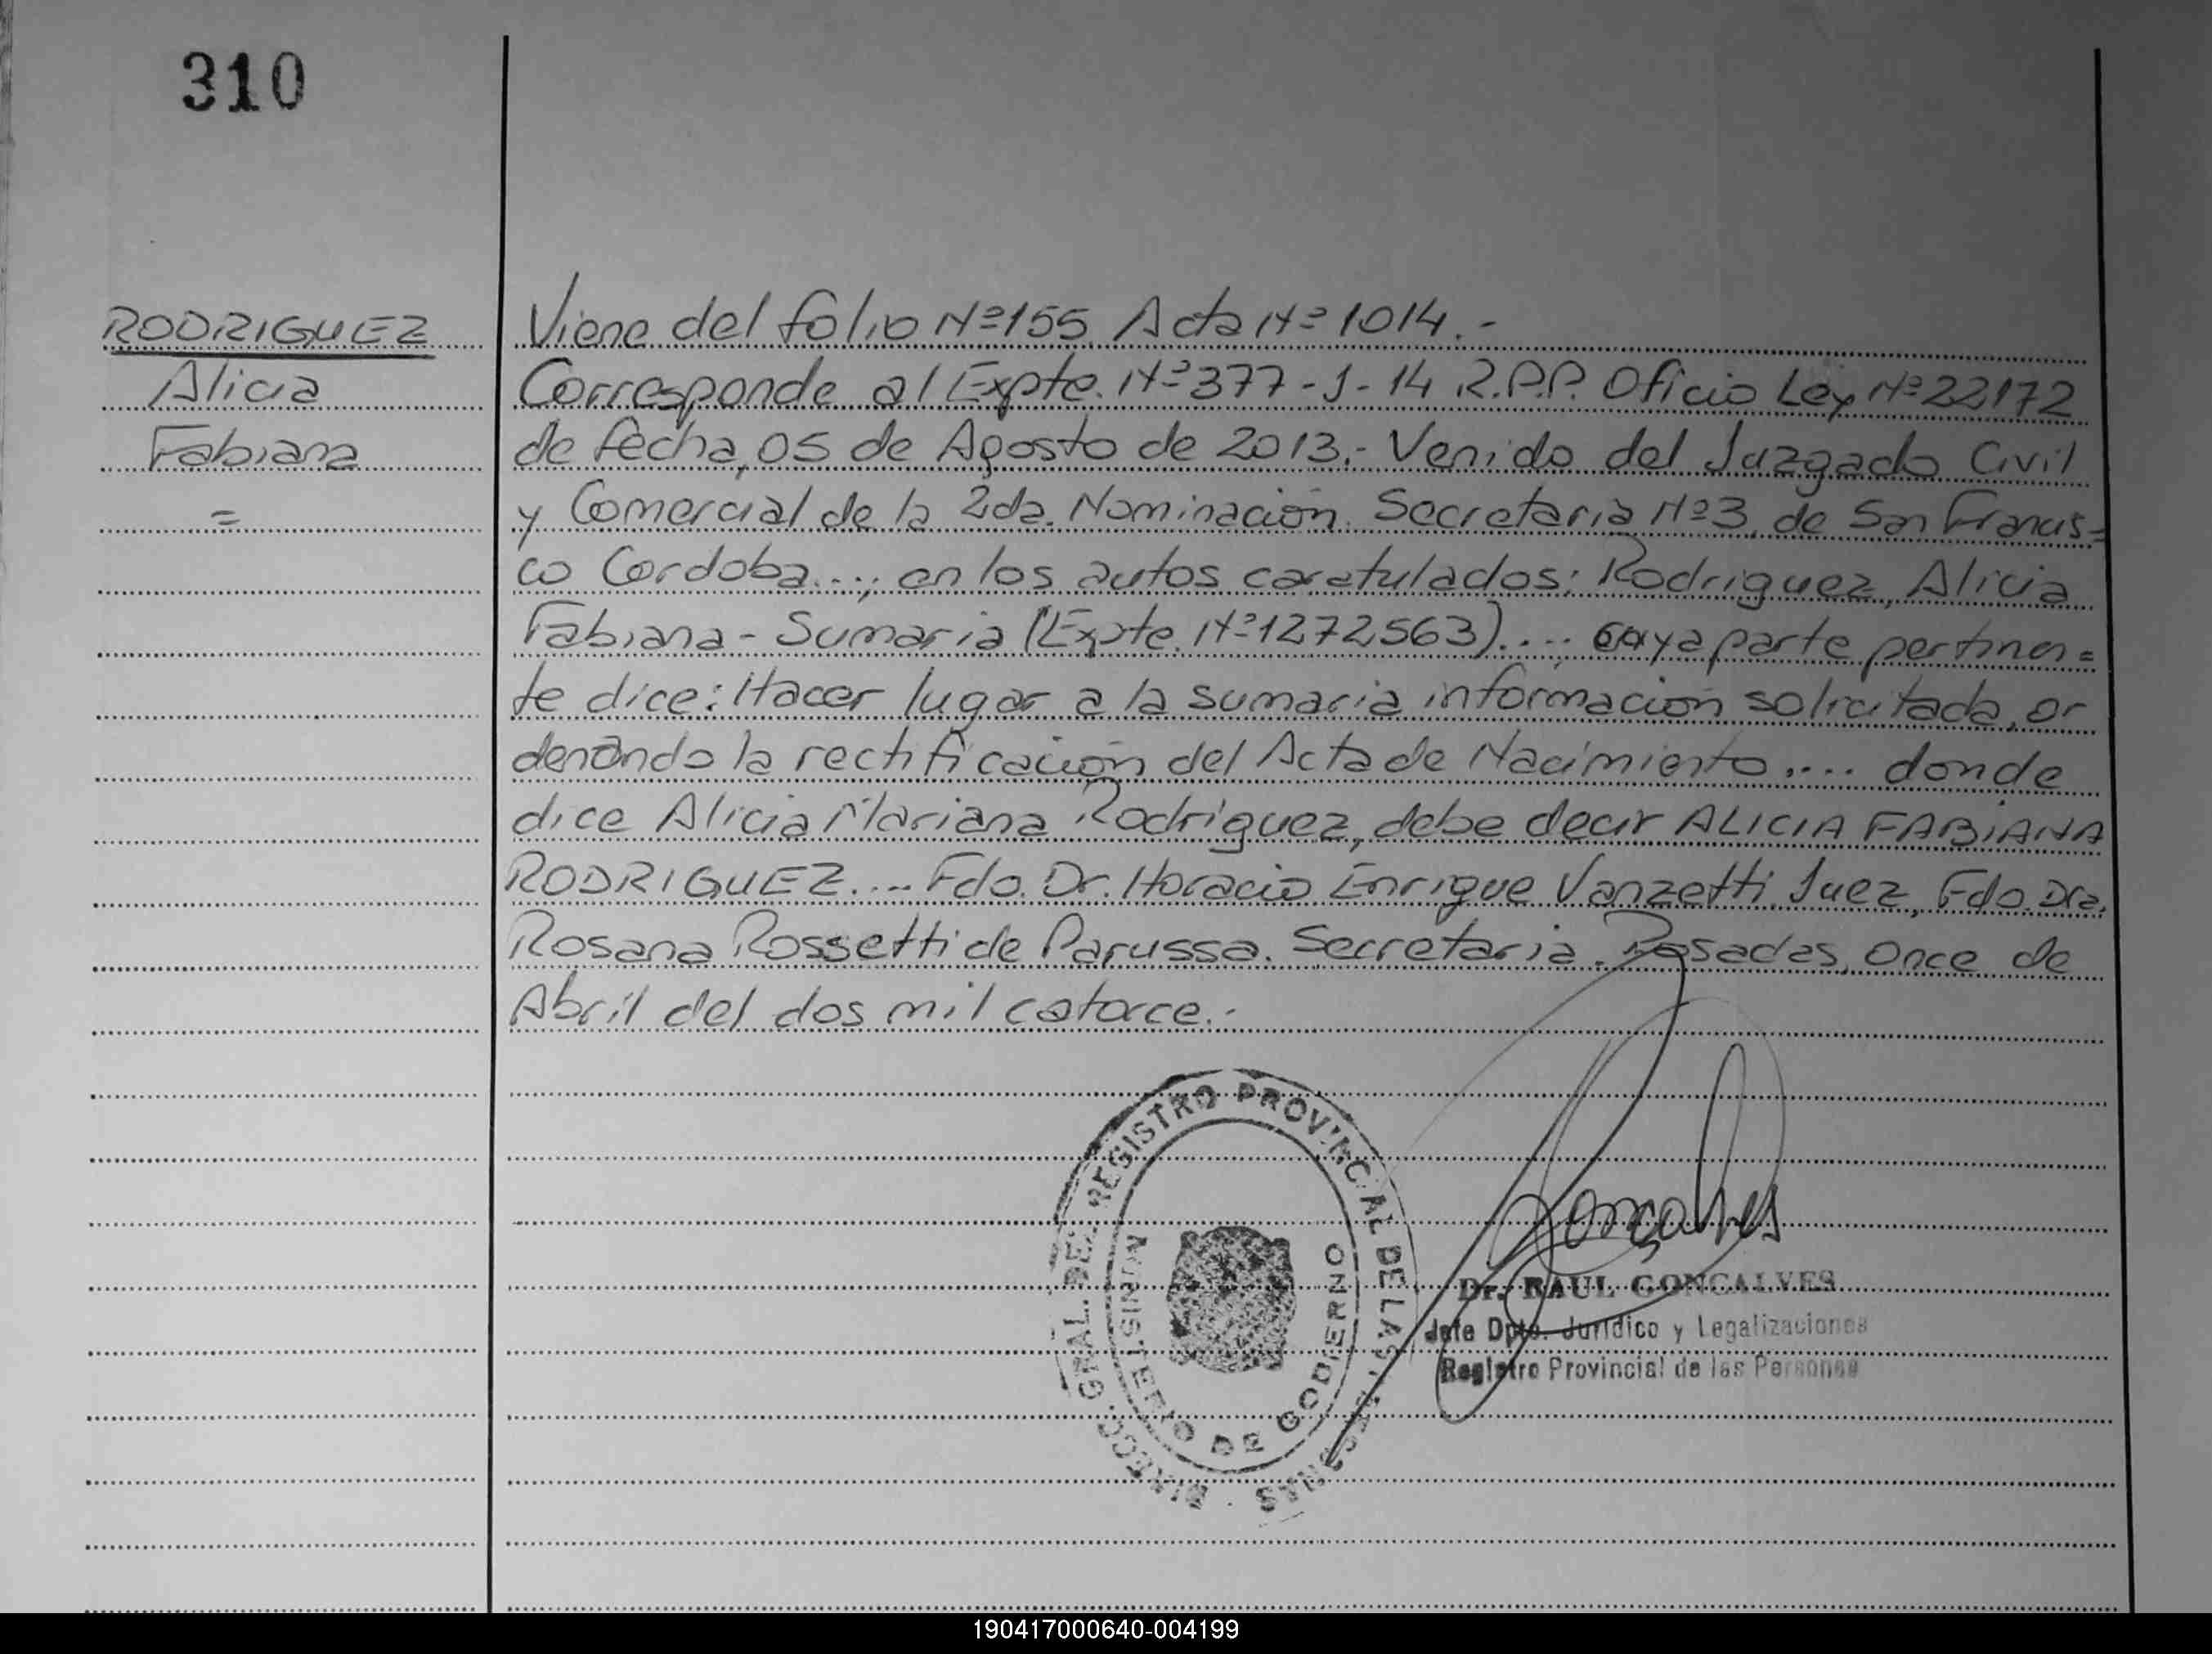 310
RODRIGUEZ
Alicia
Fabiana
=
Viene del folio Nº155 Acta Nº 1014.-
Corresponde al Expte. Nº377-J-14 R.P.P. Oficio Ley Nº22172
de fecha, 05 de Agosto de 2013.- Venido del Juzgado Civil
y Comercial de la 2da. Nominación. Secretaria Nº3, de San Francis=
co Cordoba....; en los autos caratulados: Rodriguez, Alicia
Fabiana - Sumaria (Expte. Nº1272563).... cuya parte pertinen=
te dice: Hacer lugar a la sumaria información solicitada, or
denando la rectificación del Acta de Nacimiento.... donde
dice Alicia Mariana Rodriguez, debe decir ALICIA FABIANA
RODRIGUEZ.... Fdo. Dr. Horacio Enrique Vanzetti. Juez, Fdo. Dra.
Rosana Rossetti de Parussa. Secretaria. Posadas, once de
Abril del dos mil catorce.-
DIRECC. GRAL. DEL REGISTRO PROVINCIAL DE LAS PERSONAS
MINISTERIO DE GOBIERNO
Gonçalves
Dr. RAUL GONCALVES
Jefe Dpto. Jurídico y Legalizaciones
Registro Provincial de las Personas
190417000640-004199